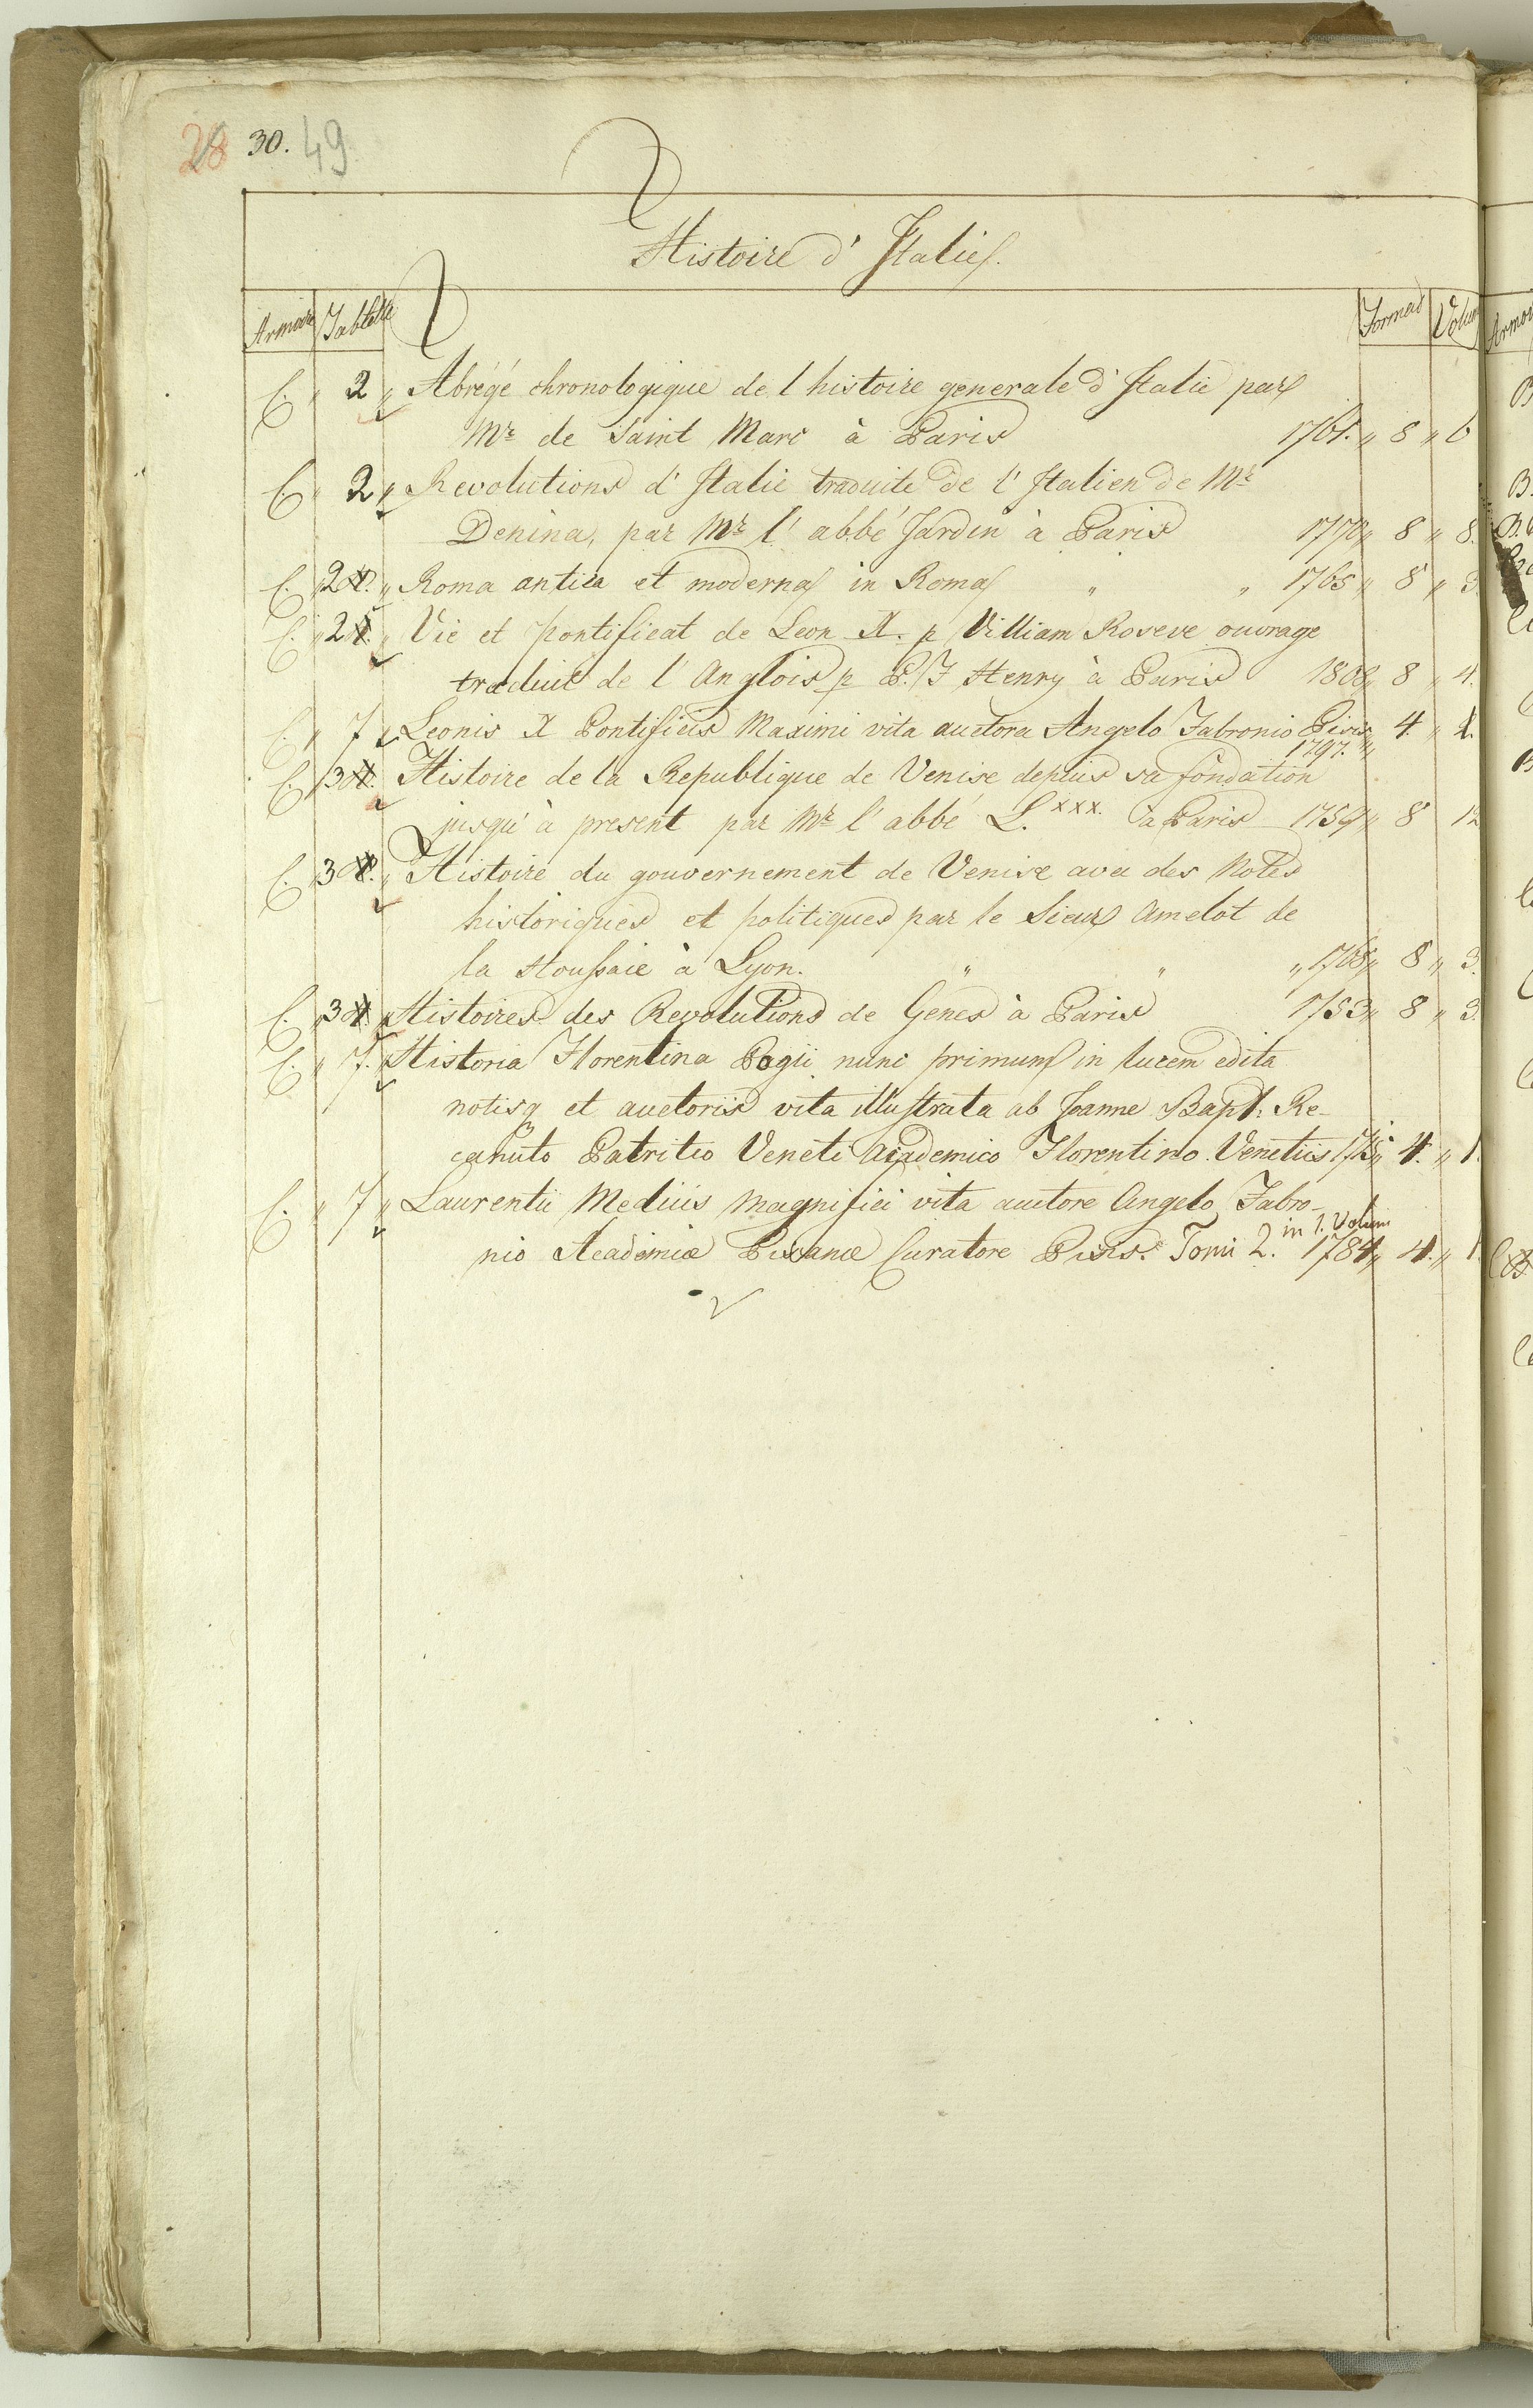 28 30. 49
Histoire d' Italie.
Armoire Tablette Format Volum
C. " 2 " Abrégé chronologique de l histoire generale d' Italie par
Mr de Saint Marc à Paris 1761. " 8 " 6
C. " 2 " Revolutions d' Italie traduite de l' Italien de Mr
Denina, par Mr l' abbé Jardin à Paris 1770 " 8 " 8.
C. " 2 " Roma antica et moderna in Roma " " 1765 " 8 " 3
C. " 2 " Vie et pontificat de Leon X. p Villiam Roseve ouvrage
traduit de l' Anglois p P. F Henry à Paris 1808 " 8 " 4.
C. " 7 " Leonis X Pontificis Maximi vita auctore Angelo Fabronio Pisis " 4 " 1.
1797. "
C. " 3 Histoire de la Republique de Venise depuis sa fondation
jusqu' à present par Mr l' abbé L. xxx. à Paris 1759 " 8 12
C. " 3 " Histoire du gouvernement de Venise avec des Notes
historiques et politiques par le Sieur Amelot de
la Houssaie à Lyon. " " " 1768 " 8 " 3.
C. " 3 " Histoires des Revolutions de Genes à Paris 1753 " 8 " 3.
C. " 7. " Historia Florentina Pogii nunc primum in lucem edita
notisq et auctoris vita illustrata ab Joanne Bapt. Re-
canuto Patritio Veneti Academico Florentino. Venetiis 4. " 1.
C. " 7 " Laurentii Medicis Magnifici vita auctore Angelo Fabro-
in 1. Volum
nio Academiæ Pisanæ Curatore Pisis. Tomi 2. 1784 " 4. " 1.